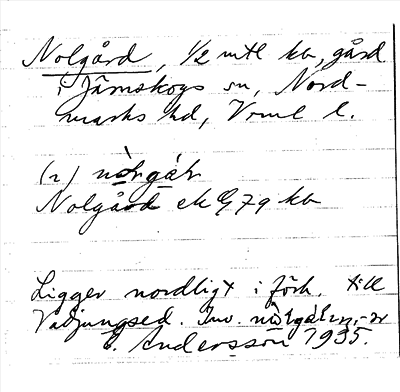 Nolgård, 1/2 mtl kb, gård
i Järnskogs sn, Nord-
marks hd, Vrml l.
(r) nòlgár
Nolgård ek 79 kb
Ligger nordligt i förh. till
Inv. -ar
E. Andersson 1935.